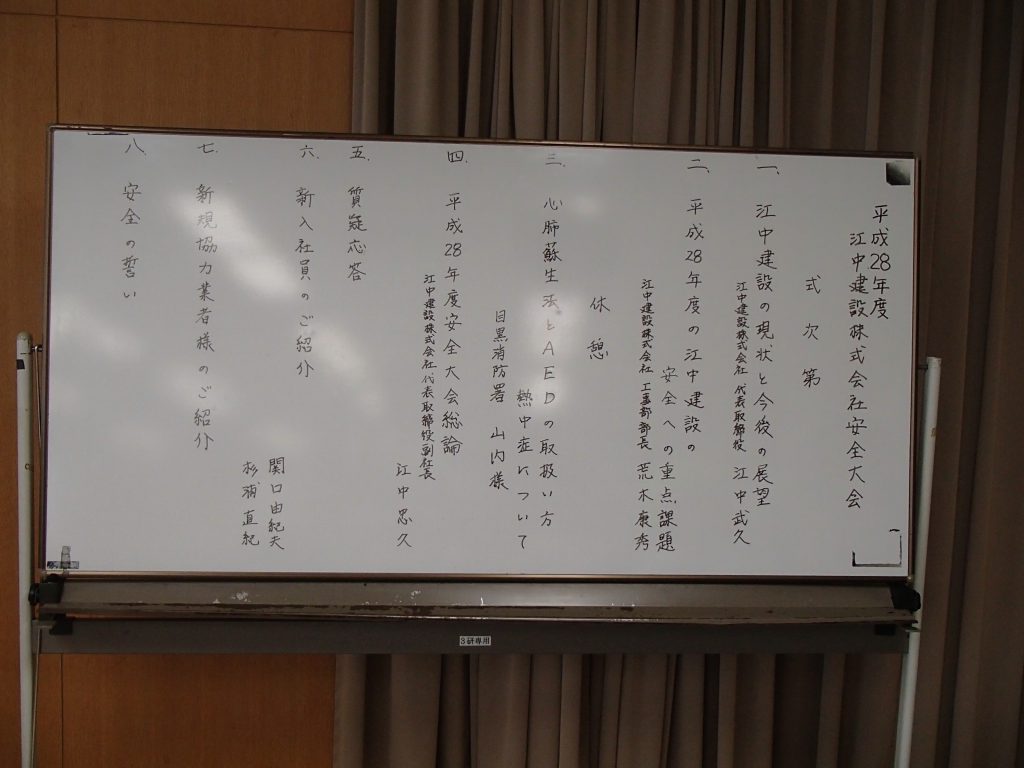 平成28年度
江中建設株式会社安全大会
式次第
一、江中建設の現状と今後の展望
江中建設株式会社 代表取締役 江中武久
二、平成28年度の江中建設の
安全への重点課題
江中建設株式会社 工事部部長 荒木康秀
休憩
三、心肺蘇生法とAEDの取扱い方
熱中症について
目黒消防署 山内様
四、平成28年度安全大会総論
江中建設株式会社 代表取締役副社長
江中忠久
五、質疑応答
六、新入社員のご紹介
関口由紀夫
杉浦直紀
七、新規協力業者様のご紹介
八、安全の誓い
3研専用